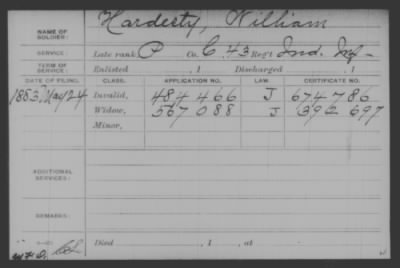 NAME OF SOLDIER: Hardesty, William
SERVICE: Late rank, P Co. C, 43 Reg't Ind. Inf
TERM OF SERVICE: Enlisted , 1 Discharged , 1
DATE OF FILING. CLASS. APPLICATION NO. LAW. CERTIFICATE NO.
1883, May 24 Invalid, 484 466 J 674 786
Widow, 567 088 J 392 697
Minor,
ADDITIONAL SERVICES:
REMARKS:
Died , 1 , at